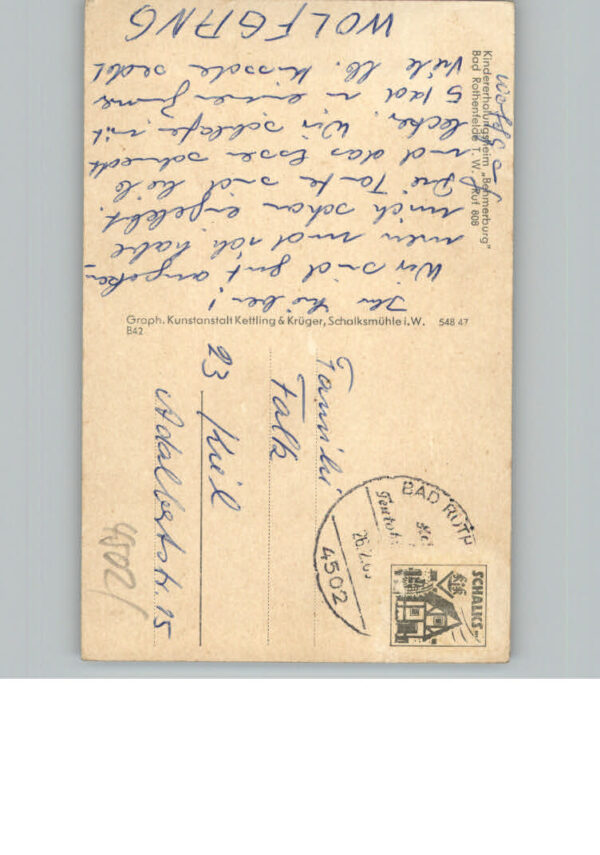 Kindererholungsheim „Behmerburg"
Bad Rothenfelde T. W. Ruf 808
Ihr Lieben!
Wir sind gut angekom-
men und ich habe
mich schon eingelebt.
Die Tante sind lieb
und das Essen schmeckt
lecker. Wir schlafen mit
5 einem
Viele lb. Küsse
WOLFGANG
Graph. Kunstanstalt Kettling & Krüger, Schalksmühle i. W. 548 47
B42
Familie
Falk
23 Kiel
Adalbertstr. 15
BAD ROTH
4502
SCHALKS
4502/